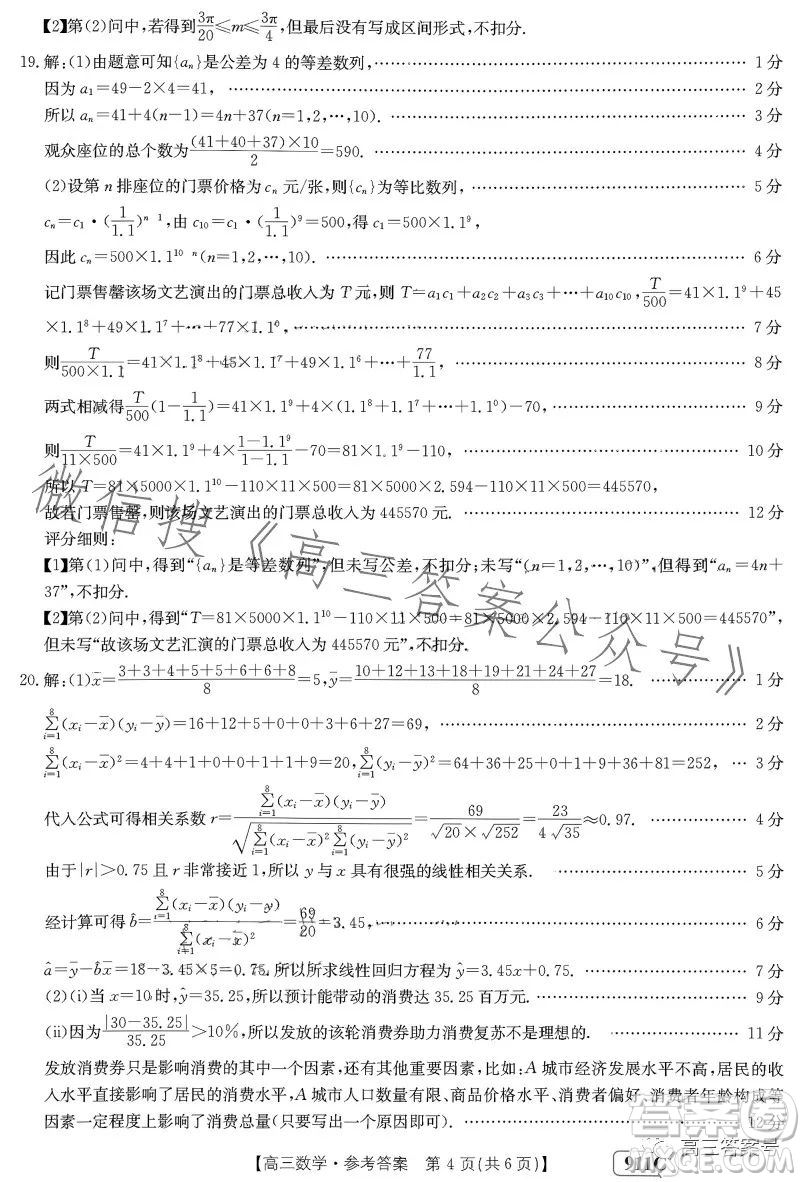 【2】第(2)问中,若得到3π/20≤m≤3π/4,但最后没有写成区间形式,不扣分.
19.解:(1)由题意可知{aₙ}是公差为4的等差数列,…… 1分
因为a₁=49-2×4=41,…… 2分
所以aₙ=41+4(n-1)=4n+37(n=1,2,…,10).…… 3分
观众座位的总个数为(41+40+37)×10/2=590.…… 4分
(2)设第n排座位的门票价格为cₙ元/张,则{cₙ}为等比数列,…… 5分
cₙ=c₁·(1/1.1)ⁿ ¹,由c₁₀=c₁·(1/1.1)⁹=500,得c₁=500×1.1⁹,
因此cₙ=500×1.1¹⁰ ⁿ(n=1,2,…,10).…… 6分
记门票售罄该场文艺演出的门票总收入为T元,则T=a₁c₁+a₂c₂+a₃c₃+…+a₁₀c₁₀,T/500=41×1.1⁹+45
×1.1⁸+49×1.1⁷+…+77×1.1⁰,…… 7分
则T/(500×1.1)=41×1.1⁸+45×1.1⁷+49×1.1⁶+…+77/1.1,…… 8分
两式相减得T/500(1-1/1.1)=41×1.1⁹+4×(1.1⁸+1.1⁷+…+1.1⁰)-70,…… 9分
则T/(11×500)=41×1.1⁹+4×(1-1.1⁹)/(1-1.1)-70=81×1.1⁹-110,…… 10分
所以T=81×5000×1.1¹⁰-110×11×500=81×5000×2.594-110×11×500=445570,
故若门票售罄,则该场文艺演出的门票总收入为445570元.…… 12分
评分细则:
【1】第(1)问中,得到“{aₙ}是等差数列”,但未写公差,不扣分;未写“(n=1,2,…,10)”,但得到“aₙ=4n+
37”,不扣分.
【2】第(2)问中,得到“T=81×5000×1.1¹⁰-110×11×500=81×5000×2.594-110×11×500=445570”,
但未写“故该场文艺汇演的门票总收入为445570元”,不扣分.
20.解:(1)x̄=(3+3+4+5+5+6+6+8)/8=5,ȳ=(10+12+13+18+19+21+24+27)/8=18.…… 1分
∑ᵢ₌₁⁸(xᵢ-x̄)(yᵢ-ȳ)=16+12+5+0+0+3+6+27=69,…… 2分
∑ᵢ₌₁⁸(xᵢ-x̄)²=4+4+1+0+0+1+1+9=20,∑ᵢ₌₁⁸(yᵢ-ȳ)²=64+36+25+0+1+9+36+81=252,… 3分
代入公式可得相关系数r=∑ᵢ₌₁⁸(xᵢ-x̄)(yᵢ-ȳ)/√(∑ᵢ₌₁⁸(xᵢ-x̄)²∑ᵢ₌₁⁸(yᵢ-ȳ)²)=69/(√20×√252)=23/(4√35)≈0.97.…… 4分
由于|r|>0.75且r非常接近1,所以y与x具有很强的线性相关关系.…… 5分
经计算可得b̂=∑ᵢ₌₁⁸(xᵢ-x̄)(yᵢ-ȳ)/∑ᵢ₌₁⁸(xᵢ-x̄)²=69/20=3.45,…… 6分
â=ȳ-b̂x̄=18-3.45×5=0.75,所以所求线性回归方程为ŷ=3.45x+0.75.…… 7分
(2)(i)当x=10时,ŷ=35.25,所以预计能带动的消费达35.25百万元.…… 9分
(ii)因为|30-35.25|/35.25>10%,所以发放的该轮消费券助力消费复苏不是理想的.…… 11分
发放消费券只是影响消费的其中一个因素,还有其他重要因素,比如:A城市经济发展水平不高,居民的收
入水平直接影响了居民的消费水平,A城市人口数量有限、商品价格水平、消费者偏好、消费者年龄构成等
因素一定程度上影响了消费总量(只要写出一个原因即可).…… 12分
微信搜《高三答案公众号》
答案圈
高三答案号
【高三数学·参考答案 第4页(共6页)】
911C